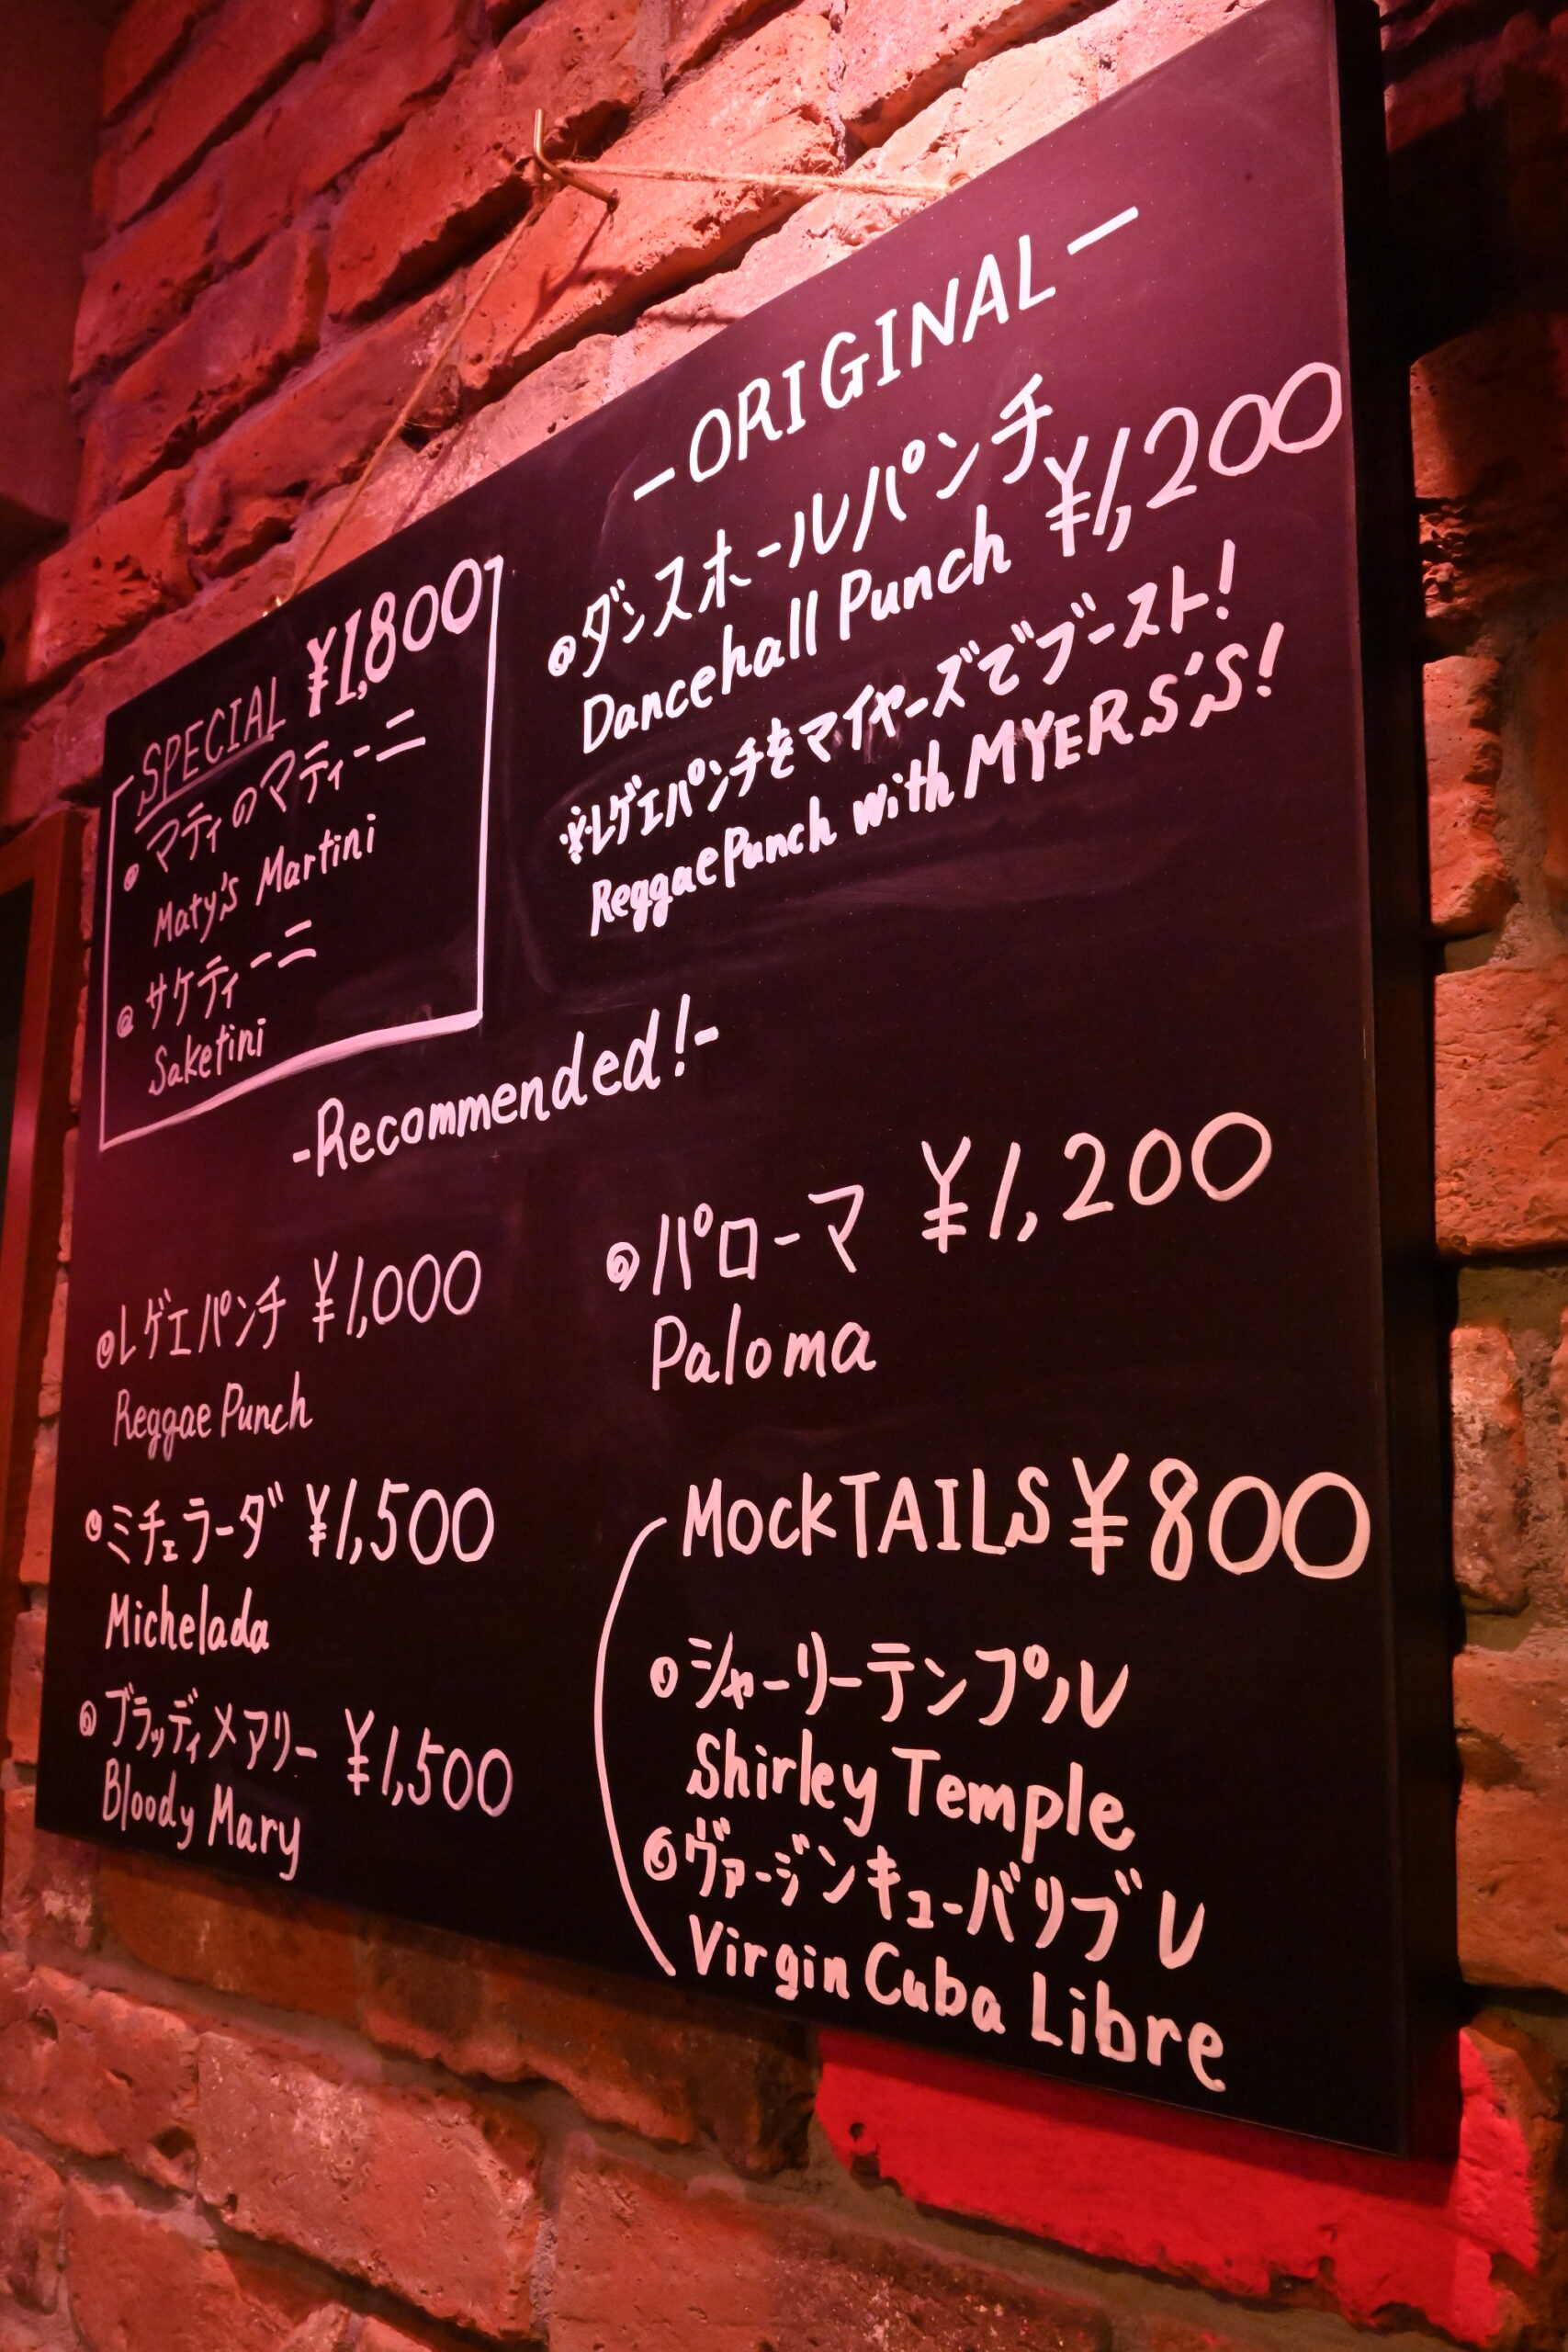 SPECIAL ¥1,800
マティのマティーニ
Maty's Martini
サケティーニ
Saketini
-ORIGINAL-
ダンスホールパンチ
Dancehall Punch ¥1,200
※レゲエパンチをマイヤーズでブースト!
Reggae Punch with MYERS'S!
-Recommended!-
レゲエパンチ ¥1,000
Reggae Punch
ミチェラーダ ¥1,500
Michelada
ブラッディメアリー ¥1,500
Bloody Mary
パローマ ¥1,200
Paloma
MockTAILS ¥800
シャーリーテンプル
Shirley Temple
ヴァージンキューバリブレ
Virgin Cuba Libre